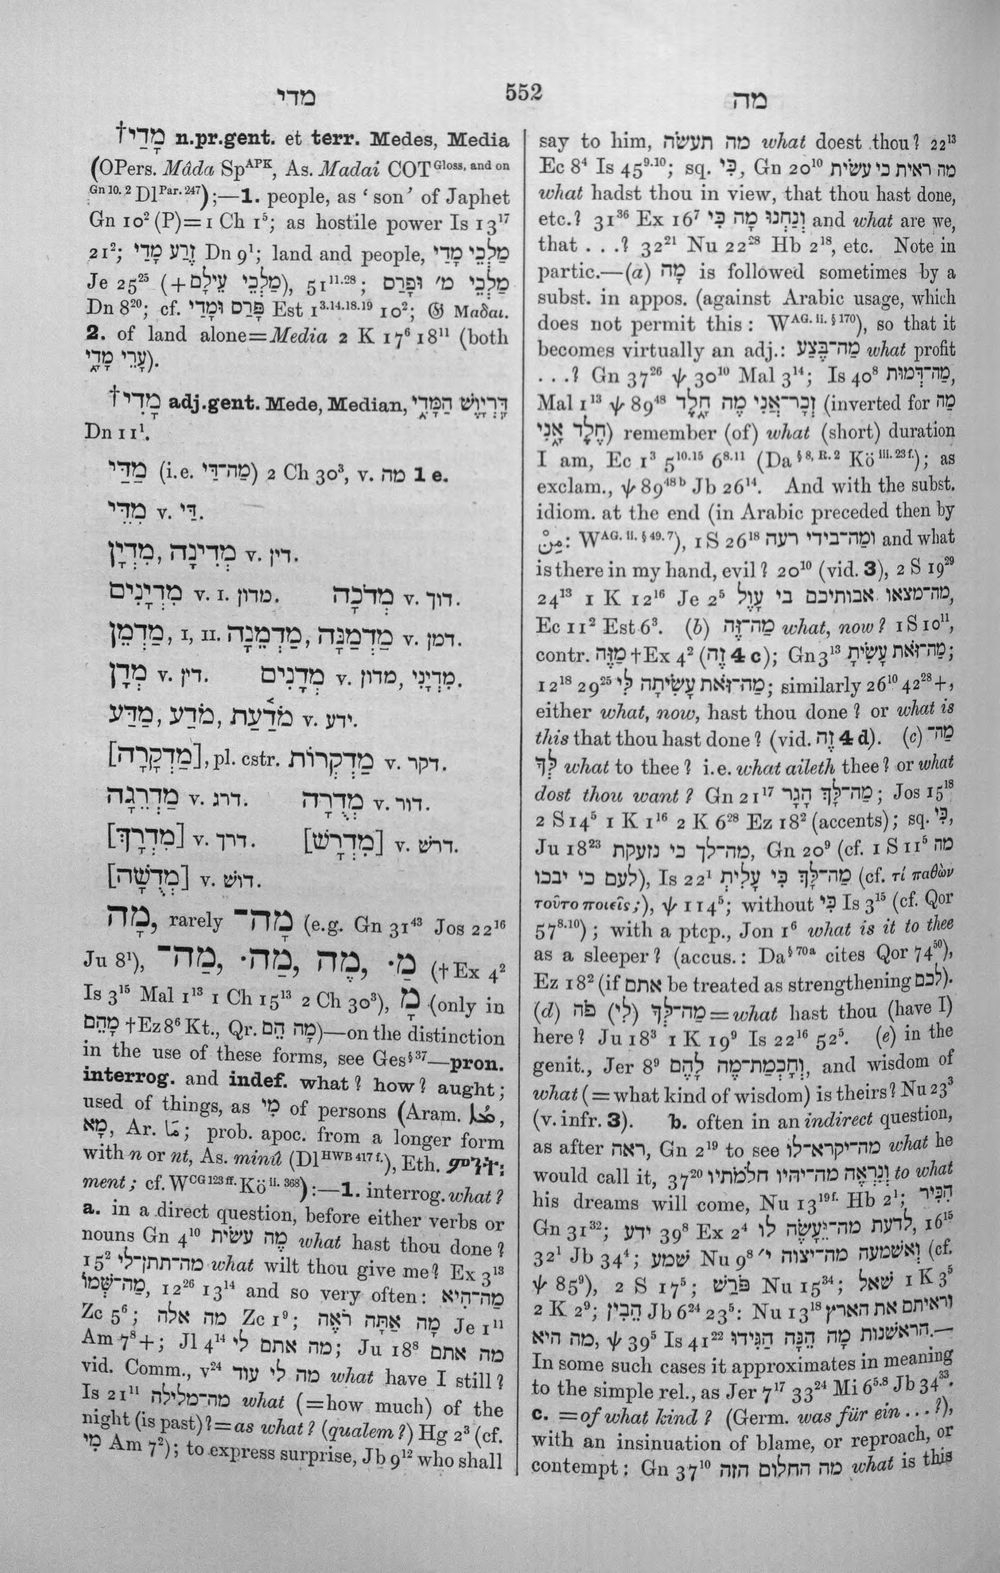 מדי
552
מה
†מָדַי n.pr.gent. et terr. Medes, Media
(OPers. Mâda Sp^APK, As. Madai COT^Gloss, and on
Gn 10. 2 Dl^Par. 247);—1. people, as ‘son’ of Japhet
Gn 10² (P)=1 Ch 1⁵; as hostile power Is 13¹⁷
21²; זֶרַע מָדָי Dn 9¹; land and people, מַלְכֵי מָדָי
Je 25²⁵ (+מַלְכֵי עֵילָם), 51¹¹·²⁸; מַלְכֵי מ׳ וּפָרָס
Dn 8²⁰; cf. פָּרַס וּמָדַי Est 1³·¹⁴·¹⁸·¹⁹ 10²; 𝔊 Μαδαι.
2. of land alone=Media 2 K 17⁶ 18¹¹ (both
עָרֵי מָדָי).
†מָדִי adj.gent. Mede, Median, דָּֽרְיָוֶשׁ הַמָּדִי,
Dn 11¹.
מַדַּי (i.e. מַה־דַּי) 2 Ch 30³, v. מה 1 e.
מִדֵּי v. דַּי.
מִדְיָן, מְדִינָה v. דין.
מִדְיָנִים v. I. מדון. מְדֹכָה v. דוך.
מַדְמֵן, I, II. מַדְמַנָּה, מַדְמֵנָה v. דמן.
מְדָן v. דין. מְדָנִים v. מדון, מִדְיָנִי.
מַדַּע, מֹדָע, מֹדַעַת v. ידע.
[מַדְקָרָה], pl. cstr. מַדְקְרוֹת v. דקר.
מַדְרֵגָה v. דרג. מְדֻרָה v. דור.
[מִדְרָךְ] v. דרך. [מִדְרָשׁ] v. דרשׁ.
[מְדֻשָׁה] v. דושׁ.
מָה, rarely מָה־ (e.g. Gn 31⁴³ Jos 22¹⁶
Ju 8¹), מַה־, מַה·, מֶה, מַ· († Ex 4²
Is 3¹⁵ Mal 1¹³ 1 Ch 15¹³ 2 Ch 30³), מָ (only in
מָהֵם † Ez 8⁶ Kt., Qr. מָה הֵם)—on the distinction
in the use of these forms, see Ges^§37—pron.
interrog. and indef. what? how? aught;
used of things, as מִי of persons (Aram.
מָא, Ar. مَا; prob. apoc. from a longer form
with n or nt, As. minû (Dl^HWB 417 f.), Eth.
ment; cf. W^CG 123 ff. Kö^ii. 368):—1. interrog. what?
a. in a direct question, before either verbs or
nouns Gn 4¹⁰ מֶה עשׂית what hast thou done?
15² מה־תתן־לי what wilt thou give me? Ex 3¹³
מַה־שְּׁמוֹ, 12²⁶ 13¹⁴ and so very often: מַה־הִיא
Zc 5⁶; מה אלה Zc 1⁹; מָה אַתָּה רֹאֶה Je 1¹¹
Am 7⁸+; Jl 4¹⁴ מה אתם לִי; Ju 18⁸ מה אתם
vid. Comm., v²⁴ מה לי עוד what have I still?
Is 21¹¹ מה־מלילה what (=how much) of the
night (is past)?=as what? (qualem?) Hg 2³ (cf.
מִי Am 7²); to express surprise, Jb 9¹² who shall
say to him, מה תעשׂה what doest thou? 22¹³
Ec 8⁴ Is 45⁹·¹⁰; sq. כִּי, Gn 20¹⁰ מה ראית כי עשׂית
what hadst thou in view, that thou hast done,
etc.? 31³⁶ Ex 16⁷ וְנַחְנוּ מָה כִּי and what are we,
that . . .? 32²¹ Nu 22²⁸ Hb 2¹⁸, etc. Note in
partic.—(a) מָה is followed sometimes by a
subst. in appos. (against Arabic usage, which
does not permit this : W^AG. ii. § 170), so that it
becomes virtually an adj.: מַה־בֶּצַע what profit
. . .? Gn 37²⁶ ψ 30¹⁰ Mal 3¹⁴; Is 40⁸ מַה־דְּמוּת,
Mal 1¹³ ψ 89⁴⁸ זְכָר־אֲנִי מֶה חָלֶד (inverted for מה
חֶלֶד אָנִי) remember (of) what (short) duration
I am, Ec 1³ 5¹⁰·¹⁵ 6⁸·¹¹ (Da^§ 8, R. 2 Kö^iii. 23 f.); as
exclam., ψ 89⁴⁸ᵇ Jb 26¹⁴. And with the subst.
idiom. at the end (in Arabic preceded then by
مِنْ: W^AG. ii. § 49. 7), 1 S 26¹⁸ ומה־בידי רעה and what
is there in my hand, evil? 20¹⁰ (vid. 3), 2 S 19²⁹
24¹³ 1 K 12¹⁶ Je 2⁵ מה־מצאו אבותיכם בי עָוֶל,
Ec 11² Est 6³. (b) מַה־זֶּה what, now? 1 S 10¹¹,
contr. מַזֶּה † Ex 4² (זֶה 4 c); Gn 3¹³ מַה־זֹּאת עָשִׂית;
12¹⁸ 29²⁵ מַה־זֹּאת עָשִׂיתָה לִּי; similarly 26¹⁰ 42²⁸+,
either what, now, hast thou done? or what is
this that thou hast done? (vid. זֶה 4 d). (c) מַה־
לְּךָ what to thee? i.e. what aileth thee? or what
dost thou want? Gn 21¹⁷ מַה־לָּךְ הָגָר; Jos 15¹⁸
2 S 14⁵ 1 K 1¹⁶ 2 K 6²⁸ Ez 18² (accents); sq. כִּי,
Ju 18²³ מה־לך כי נזעקת, Gn 20⁹ (cf. 1 S 11⁵ מה
לעם כי יבכו), Is 22¹ מַה־לָּךְ כִּי עָלִית (cf. τί παθὼν
τοῦτο ποιεῖς;), ψ 114⁵; without כִּי Is 3¹⁵ (cf. Qor
57⁸·¹⁰); with a ptcp., Jon 1⁶ what is it to thee
as a sleeper? (accus.: Da^§ 70a cites Qor 74⁵⁰),
Ez 18² (if אתם be treated as strengthening לכם).
(d) מַה־לְּךָ (לִי) פֹה=what hast thou (have I)
here? Ju 18³ 1 K 19⁹ Is 22¹⁶ 52⁵. (e) in the
genit., Jer 8⁹ וְחָכְמַת־מֶה לָהֶם, and wisdom of
what (=what kind of wisdom) is theirs? Nu 23³
(v. infr. 3). b. often in an indirect question,
as after ראה, Gn 2¹⁹ to see מה־יקרא־לו what he
would call it, 37²⁰ וְנִרְאֶה מה־יהיו חלמתיו to what
his dreams will come, Nu 13¹⁹ᶠ· Hb 2¹; הִכִּיר
Gn 31³²; ידע 39⁸ Ex 2⁴ לדעת מה־יֵּעָשֶׂה לו, 16¹⁵
32¹ Jb 34⁴; שׁמע Nu 9⁸ ואשׁמעה מה־יצוה י״ (cf.
ψ 85⁹), 2 S 17⁵; פֹּרַשׁ Nu 15³⁴; שׁאל 1 K 3⁵
2 K 2⁹; הֵבִין Jb 6²⁴ 23⁵: Nu 13¹⁸ וראיתם את הארץ
מה היא, ψ 39⁵ Is 41²² הראשׁנות מָה הֵנָּה הַגִּידוּ.—
In some such cases it approximates in meaning
to the simple rel., as Jer 7¹⁷ 33²⁴ Mi 6⁵·⁸ Jb 34³³.
c. =of what kind? (Germ. was für ein ... ?),
with an insinuation of blame, or reproach, or
contempt: Gn 37¹⁰ מה החלום הזה what is this